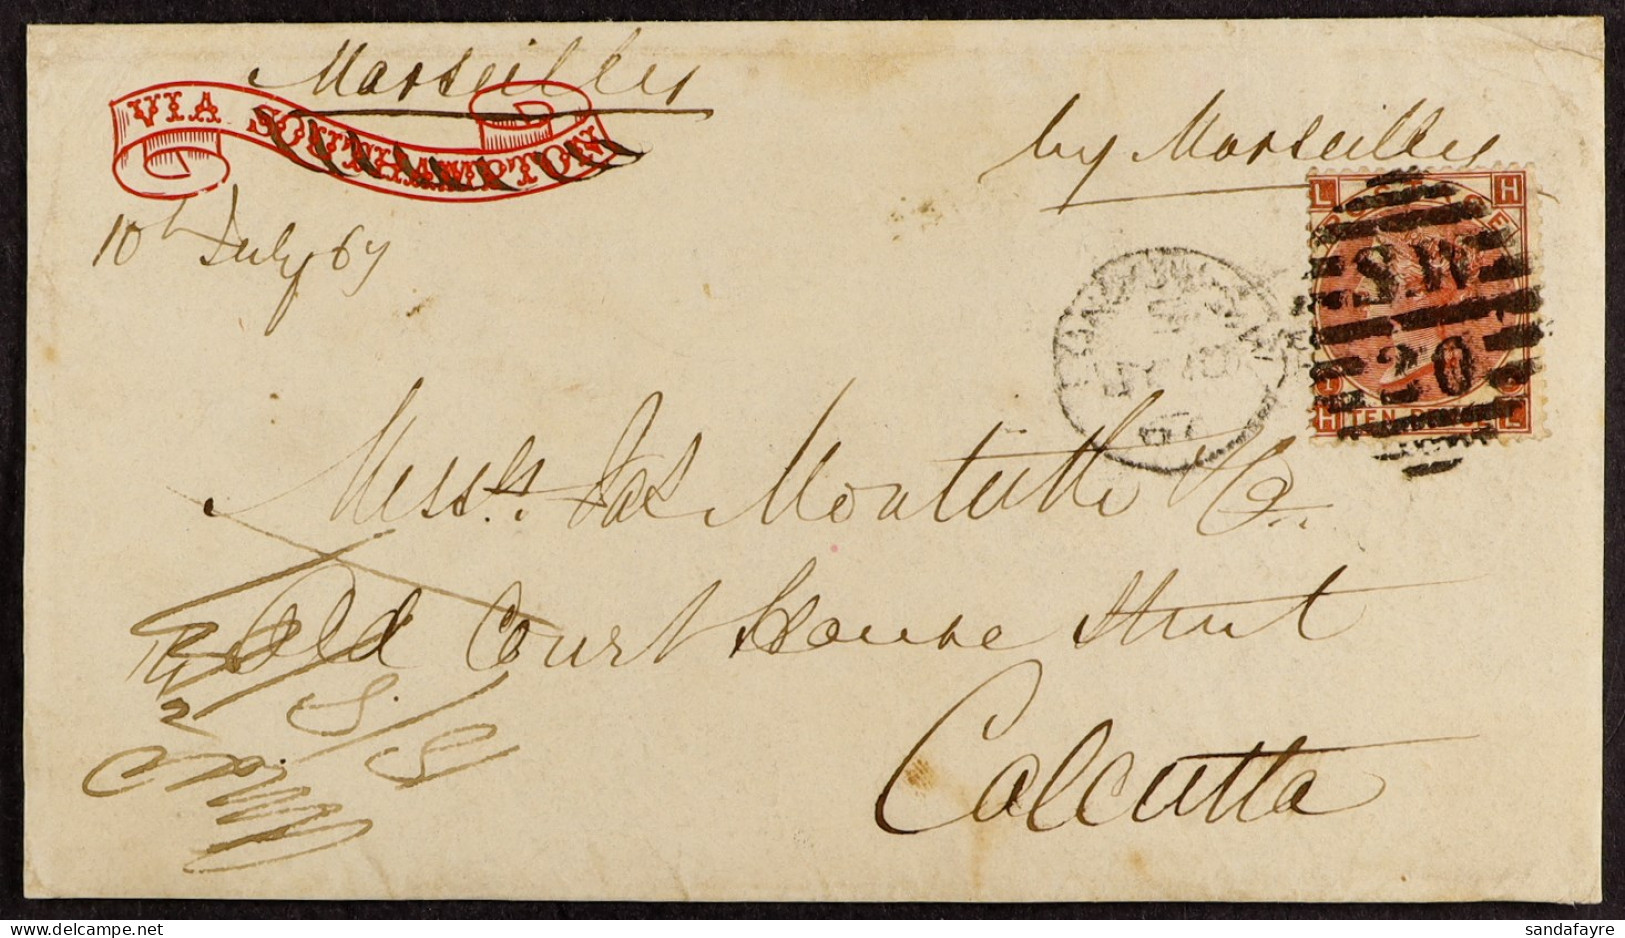 Marseilles
VIA SOUTHAMPTON
by Marseilles
10th July 67
L H
POSTAGE
S.W
20
H TEN PENCE L
67
Messrs. Jas Monteith & Co.
Old Court House Street
Calcutta
sandafayre